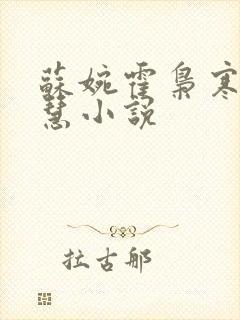 蘇婉霍梟寒
慧小說
拉古那